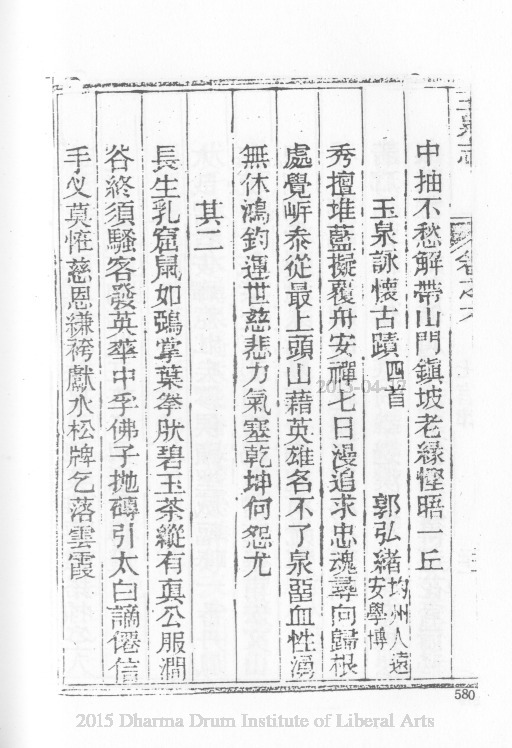 玉泉志
卷之六
中抽不愁解帶山門鎮坡老緣慳晤一丘
玉泉詠懷古蹟四首
郭弘緒均州人遠安學博
秀擅堆藍擬覆舟安禪七日漫追求忠魂尋向歸根
處覺岍泰從最上頭山藉英雄名不了泉㽞血性湧
無休鴻鈞運世慈悲力氣塞乾坤何怨尤
其二
長生乳窟鼠如鵶掌葉拳肰碧玉茶縱有真公服澗
谷終須騷客發英華中孚佛子拋磚引太白謫僊信
手叉莫惟慈恩縑袴獻水松牌乞落雲霞
2015-04-17
580
2015 Dharma Drum Institute of Liberal Arts